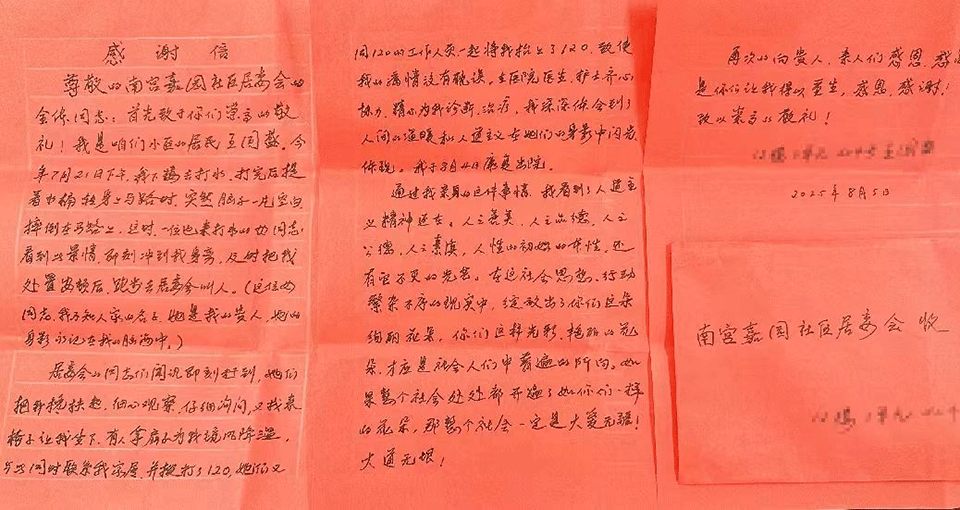 感谢信
尊敬的南宫嘉园社区居委会的
全体同志：首先致于你们崇高的敬
礼！我是咱们小区的居民王国，今
年7月21日下午，我去打水，打完后提
着水桶转身上马路时，突然脑子一片空白
摔倒在马路上，这时，一位也来打水的女同志，
看到此景情，即刻冲到我身旁，及时把我
处置安顿后，跑步去居委会叫人。（这位女
同志，我不知人家的名子，她是我的贵人，她的
身影永记在我的脑海中。）
居委会的同志们闻讯即刻赶到，她们
把我搀扶起，细心观察，仔细询问，又找来
椅子让我坐下，有人拿扇子为我扇风降温，
与此同时联系我家属，并拨打了120，她们又
同120的工作人员一起将我抬上了120，致使
我的病情没有耽误。在医院医生、护士齐心
协力，精心为我诊断、治疗，我深深体会到了
人间的温暖和人道主义在她们的身影中闪发
体现。我于8月4日康复出院。
通过我亲身的这件事情，我看到了人道主
义精神还在。人之善美，人之品德，人之
公德，人之素质，人性的初始的本性，还
有坚不更的光芒。在这社会思想、行动
繁杂不序的现实中，绽放出了你们这朵
绚丽花朵，你们这样光彩、艳丽的花
朵，才应是社会人们中普遍的所向。如
果整个社会处处都开遍了如你们一样
的花朵，那整个社会一定是大爱无疆！
大道无垠！
再次的向贵人、亲人们感恩，感
是你们让我得以重生，感恩，感谢！
致以崇高的敬礼！
2025年8月5日
南宫嘉园社区居委会 收